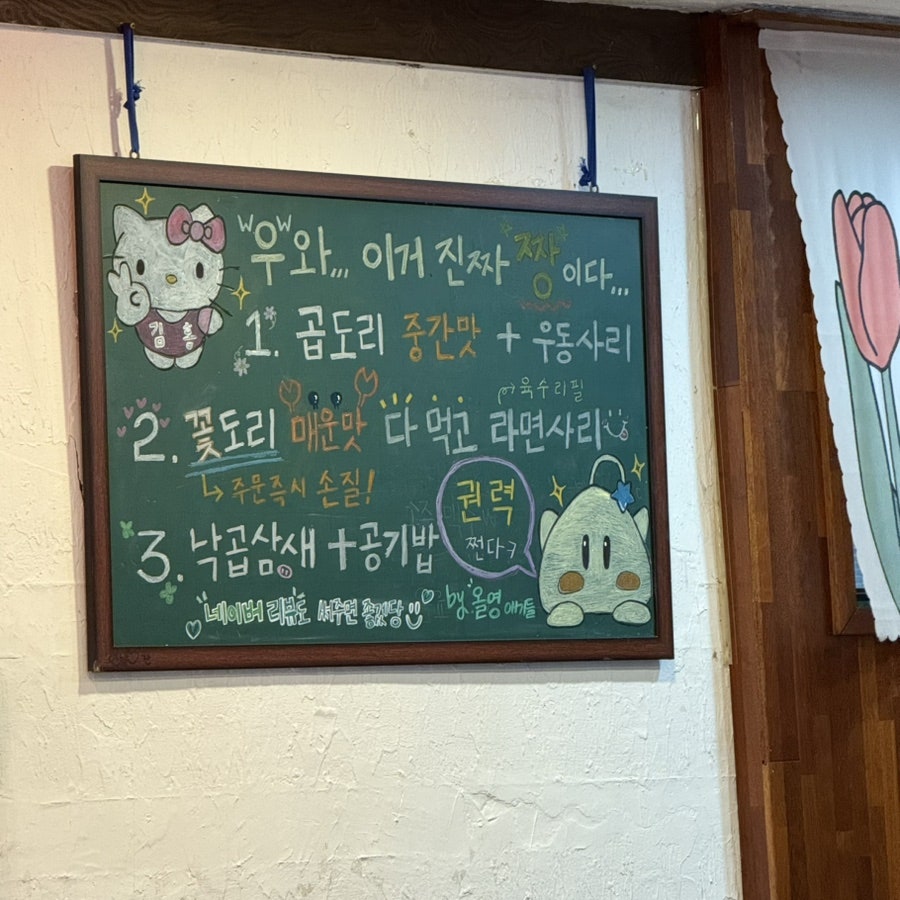 WOW
우와... 이거 진짜 "짱" 이다...
김홍
1. 곱도리 중간맛 + 우동사리
육수리필
2. 꽃도리 매운맛 다 먹고 라면사리
주문즉시 손질!
권력
쩐다ㅋ
3. 낙곱삼새 + 공기밥
"네이버 리뷰도 써주면 좋겠당
by. 올영